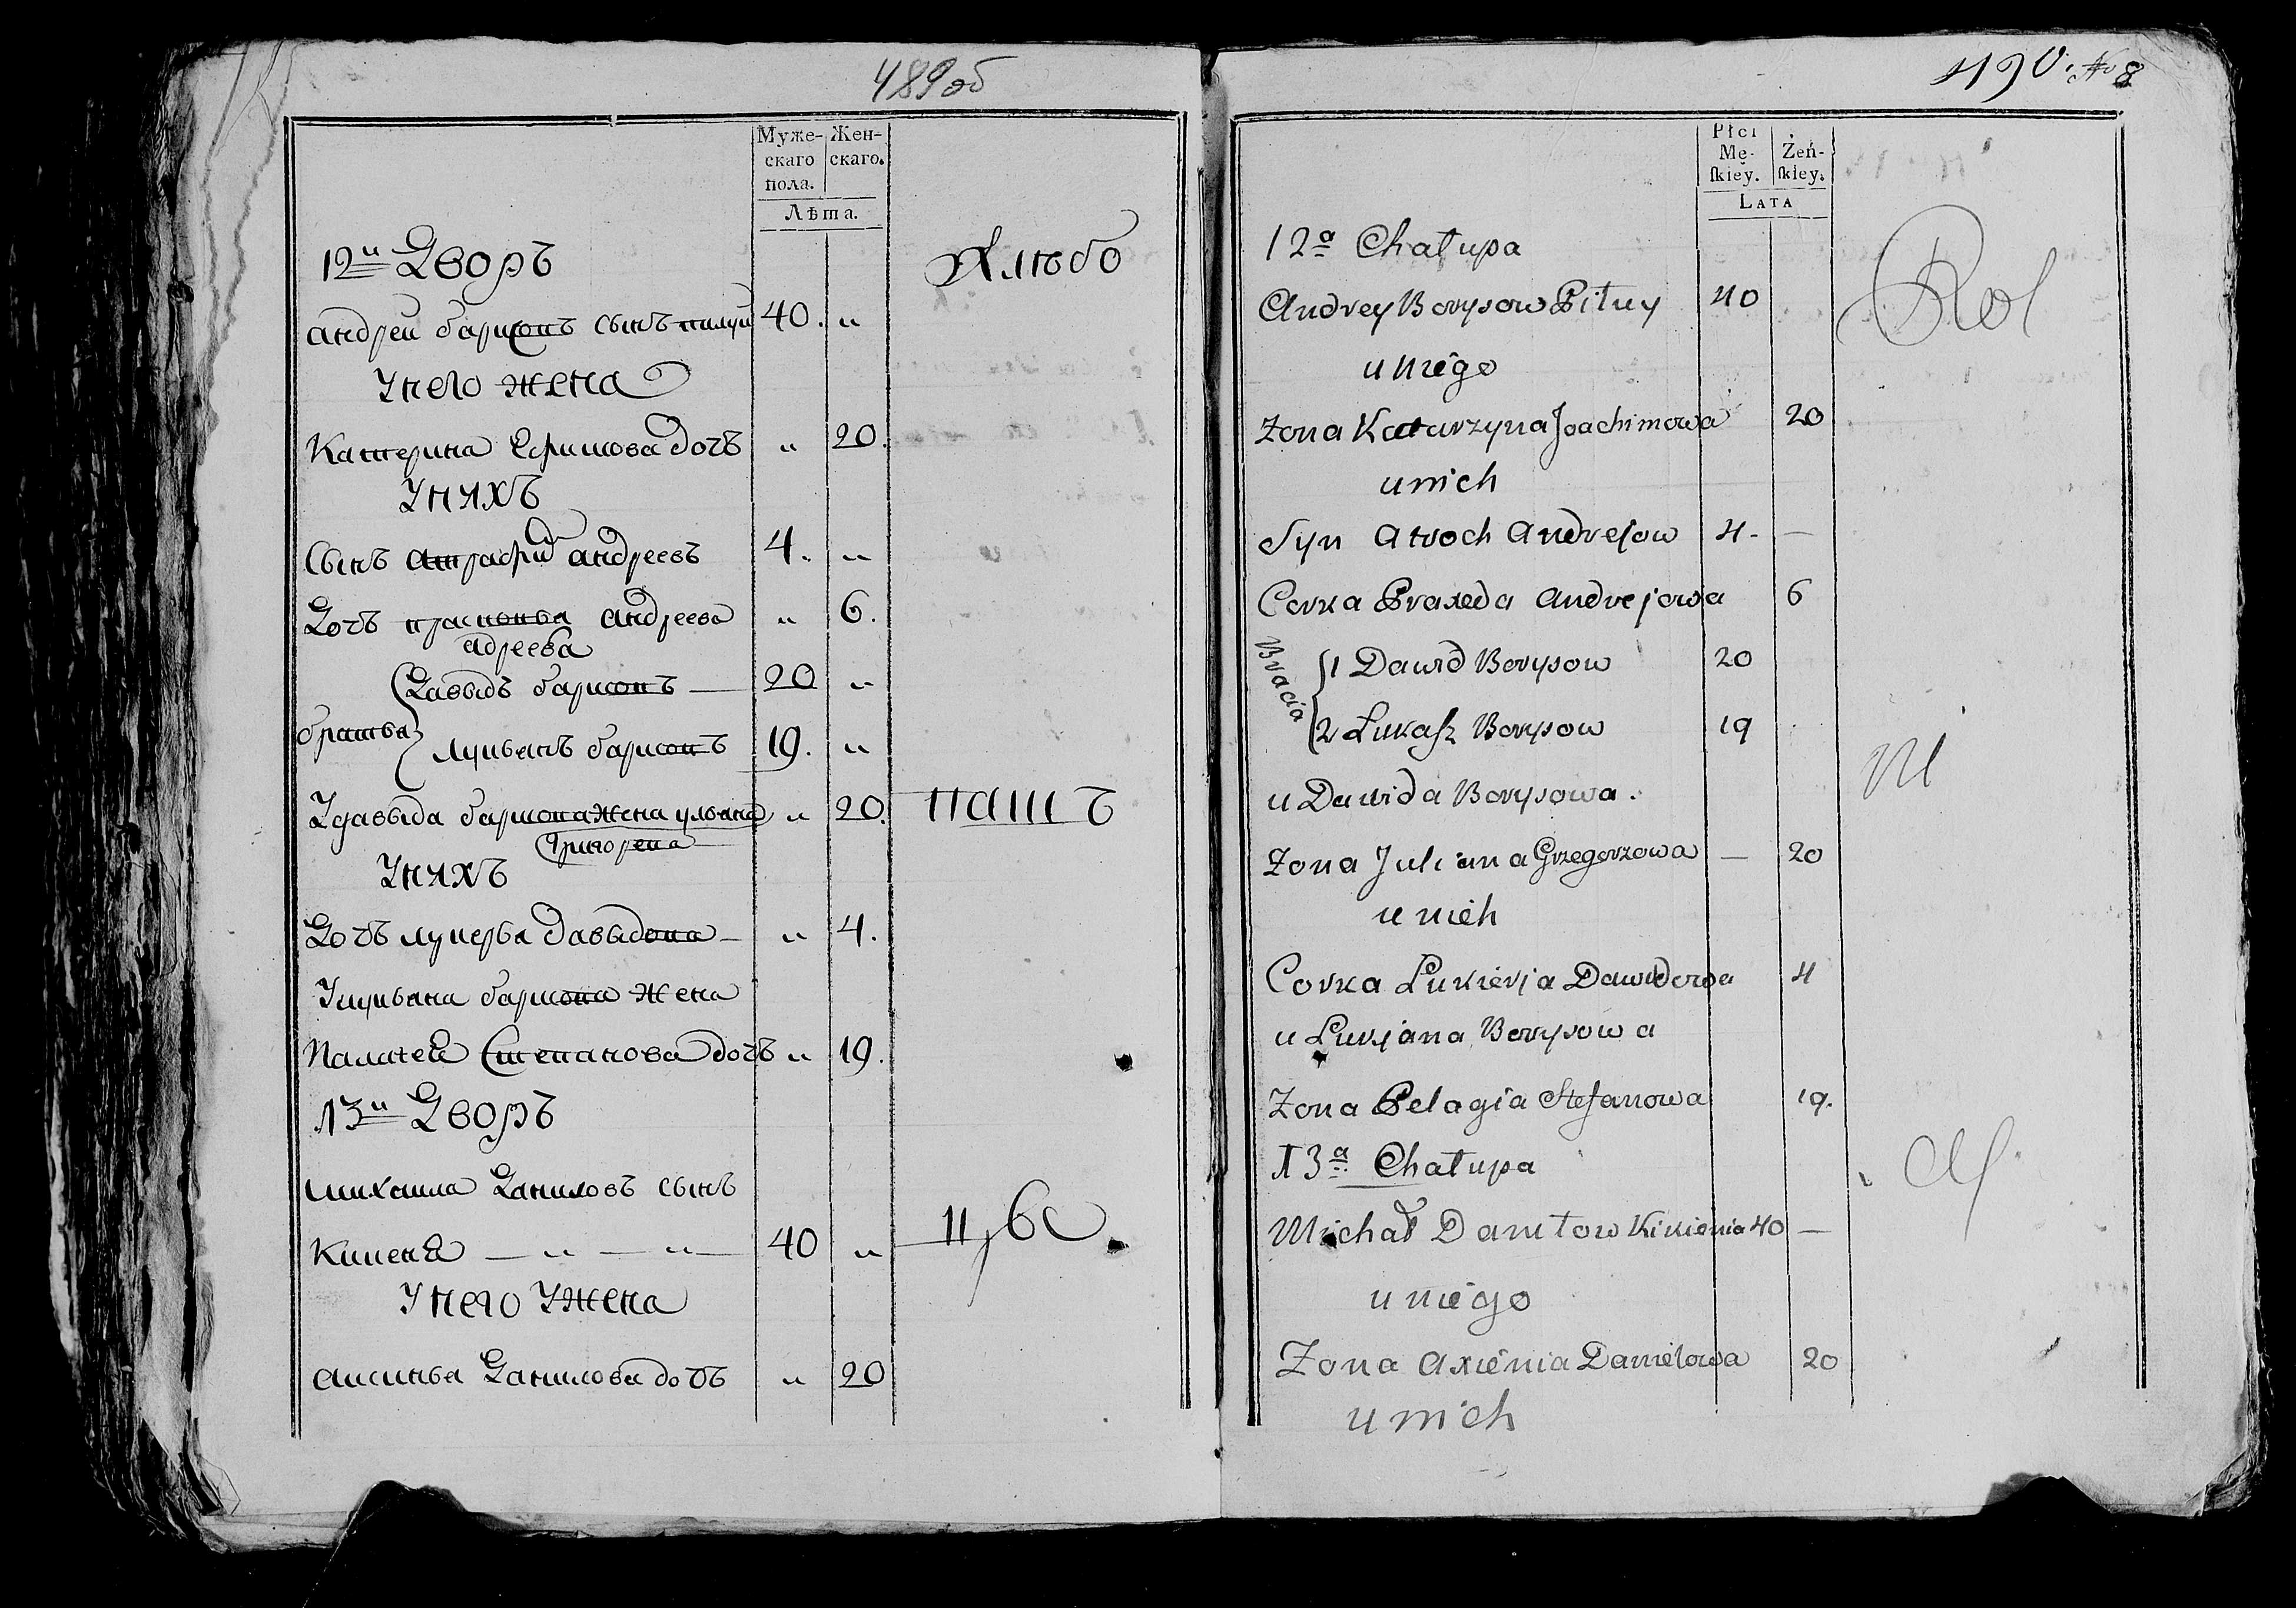 489 об
Муже-
скаго
пола.
Жен-
скаго.
Лѣта.
12й Дворъ
Хлѣбо
андрей барисовъ сынъ пилуй 40. „
Унего жена
Катерина Ефимова дочъ „ 20.
Унихъ
Сынъ атрафий андреевъ 4. „
Дочъ прасковья андреева „ 6.
адреева
братья
Давыдъ барисовъ — 20 „
лукьянъ барисовъ 19. „
Удавыда барисова жена ульяна „ 20.
григорева
пашъ
Унихъ
Дочъ лукерья давыдова — „ 4.
Улукьяна барисова жена
Палагея Степанова дочъ „ 19.
13й Дворъ
михаила Даниловъ сынъ
Кикеня — „ — „ — 40 „
Унего Ужена
аксинья Данилова дочъ „ 20
490. № 8
Płci
Mę-
ſkiey.
Żeń-
ſkiey.
LATA
12a Chałupa
Rol
Andrey Borysow Piłuy 40
u niego
Zona Katarzyna Joachimowa 20
u nich
Syn Atroch Andrejow 4. —
Corka Praxeda Andrejowa 6
Bracia
1 Dawid Borysow 20
2 Łukaſz Borysow 19
ni
u Dawida Borysowa.
Zona Juliana Grzegorzowa — 20
u nich
Corka Łukierja Dawidowa 4
u Łukjana Borysowa
Zona Pelagia Stefanowa 19.
13a Chałupa
Michał Daniłow Kikienia 40 —
u niego
Zona Axienia Daniełowa 20
u nich